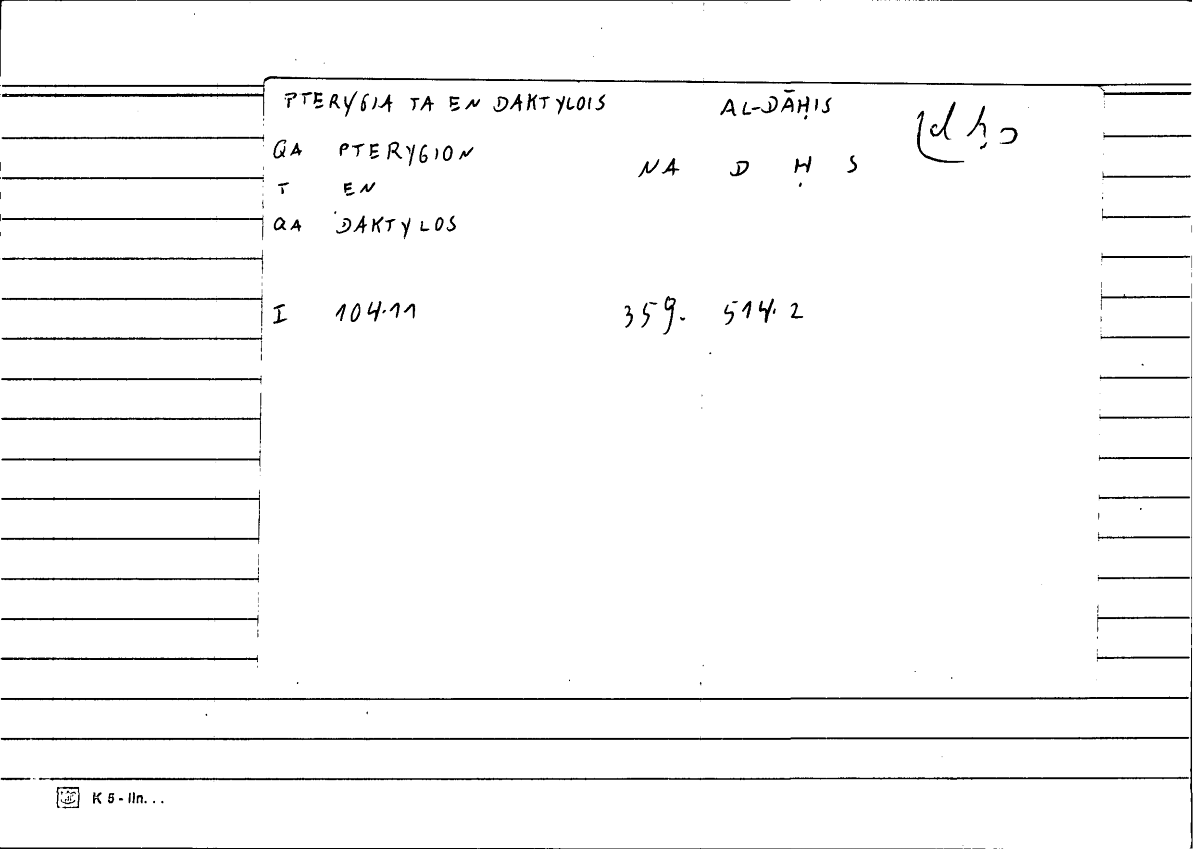 PTERYGIA TA EN DAKTYLOIS AL-DĀḤIS
QA PTERYGION NA D Ḥ S
T EN
QA DAKTYLOS
I 104.11 359. 514.2
K 5 - lln. . .